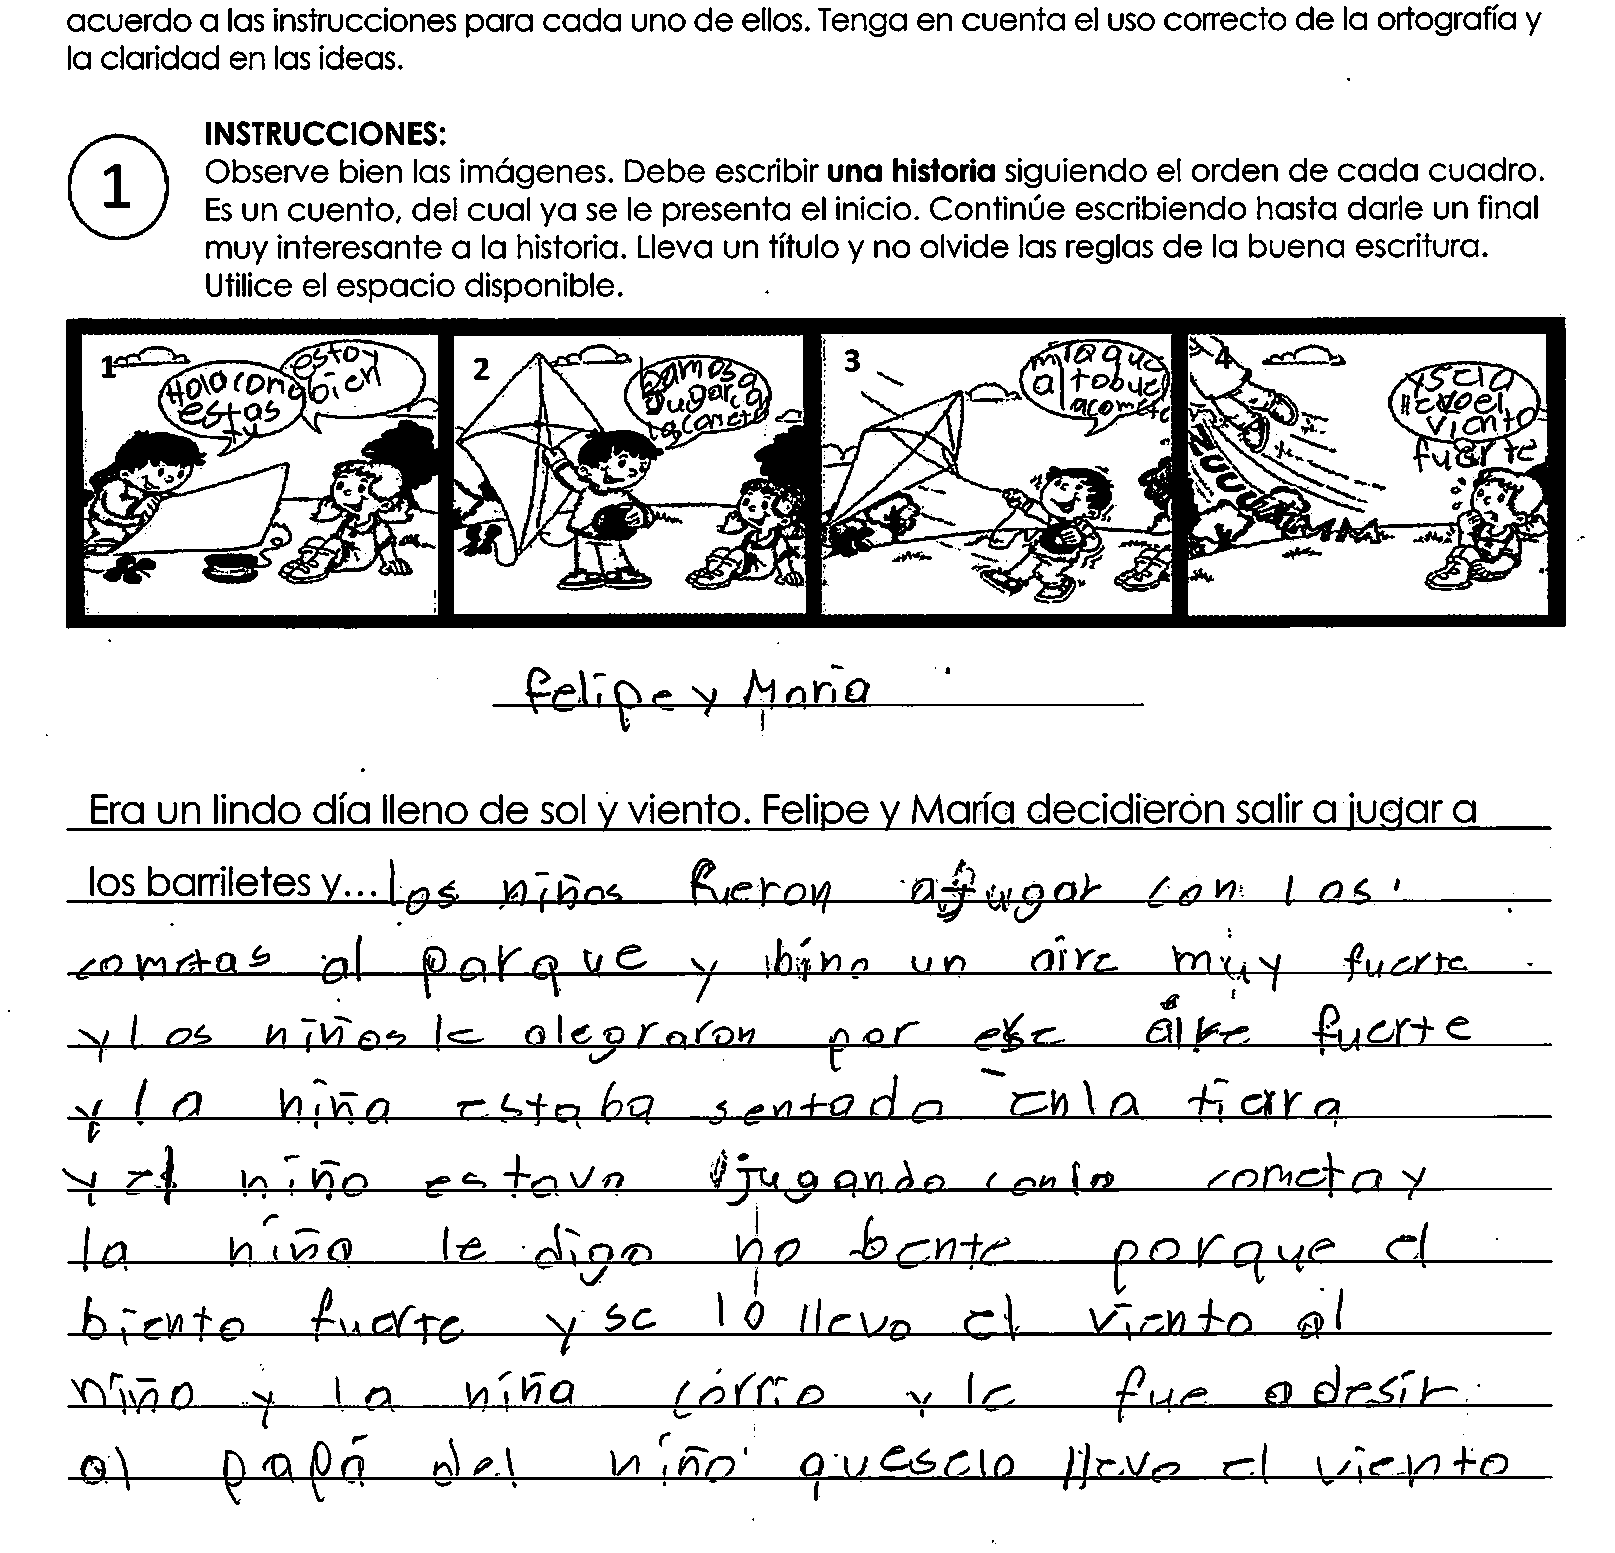 acuerdo a las instrucciones para cada uno de ellos. Tenga en cuenta el uso correcto de la ortografía y
la claridad en las ideas.
1
INSTRUCCIONES:
Observe bien las imágenes. Debe escribir una historia siguiendo el orden de cada cuadro.
Es un cuento, del cual ya se le presenta el inicio. Continúe escribiendo hasta darle un final
muy interesante a la historia. Lleva un título y no olvide las reglas de la buena escritura.
Utilice el espacio disponible.
1
Hola como
estas
tu
estoy
bien
2
bamos a
jugar a
la cometa
3
mira que
alto buela
4
y se la
llevo el
viento
fuerte
Felipe y María
Era un lindo día lleno de sol y viento. Felipe y María decidieron salir a jugar a
los barriletes y... los niños fueron a jugar con las
cometas al parque y bino un aire muy fuerte
y los niños le alegraron por ese aire fuerte
y la niña estaba sentada en la tierra
y el niño estava jugando con la cometa y
la niña le digo no bente porque el
biento fuerte y se lo llevo el viento al
niño y la niña corrio y le fue a desir
al papá del niño que se lo llevo el viento